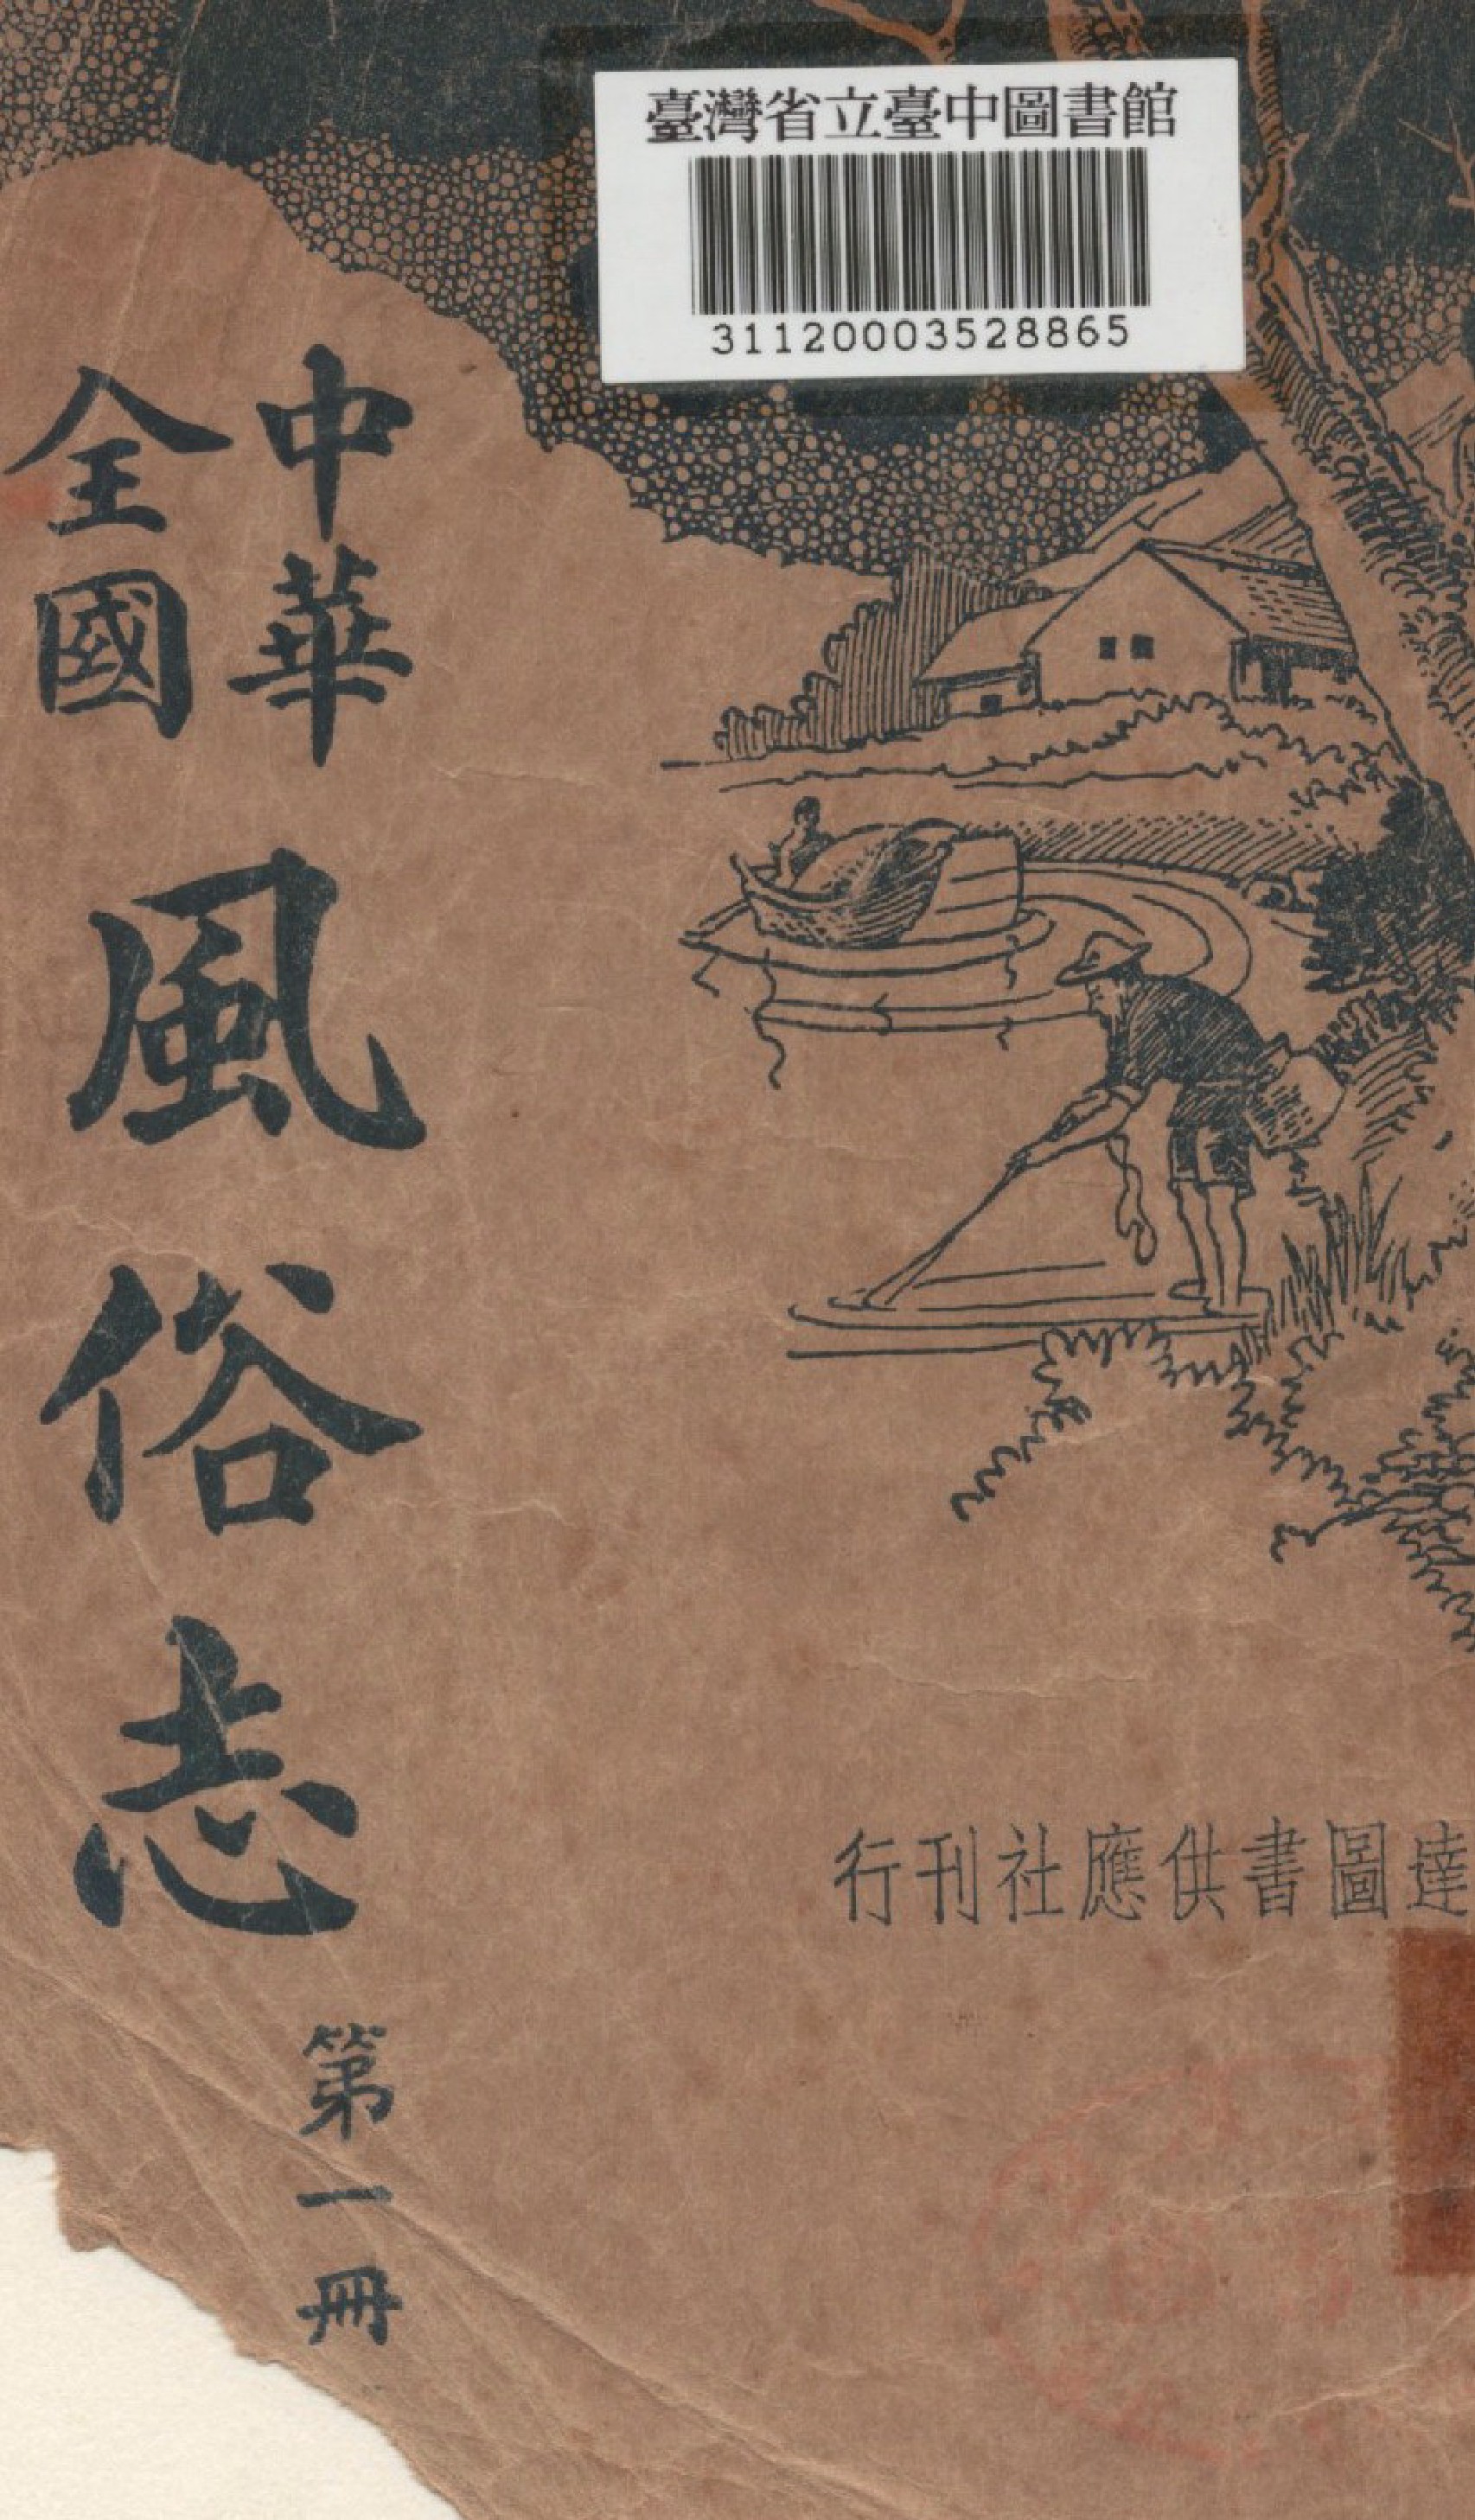 臺灣省立臺中圖書館
311200003528865
中華
全國
風俗志
第一冊
達圖書供應社刊行